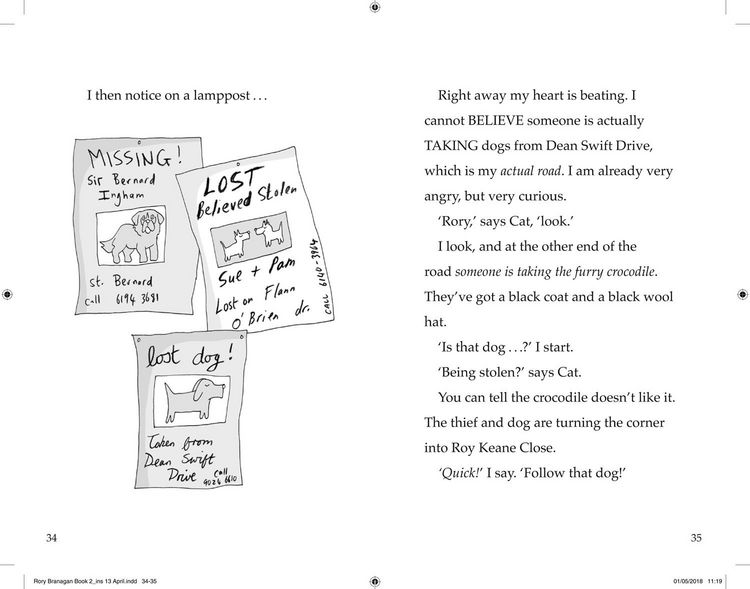 I then notice on a lamppost . . .
MISSING!
Sir Bernard
Ingham
St. Bernard
Call 6194 3681
LOST
Believed Stolen
Sue + Pam
Lost on Flann
O'Brien dr.
CALL 6140-3964
lost dog!
Taken from
Dean Swift
Drive call
9026 6610
34
Right away my heart is beating. I
cannot BELIEVE someone is actually
TAKING dogs from Dean Swift Drive,
which is my actual road. I am already very
angry, but very curious.
‘Rory,’ says Cat, ‘look.’
I look, and at the other end of the
road someone is taking the furry crocodile.
They’ve got a black coat and a black wool
hat.
‘Is that dog . . .?’ I start.
‘Being stolen?’ says Cat.
You can tell the crocodile doesn’t like it.
The thief and dog are turning the corner
into Roy Keane Close.
‘Quick!’ I say. ‘Follow that dog!’
35
Rory Branagan Book 2_ins 13 April.indd 34-35
01/05/2018 11:19